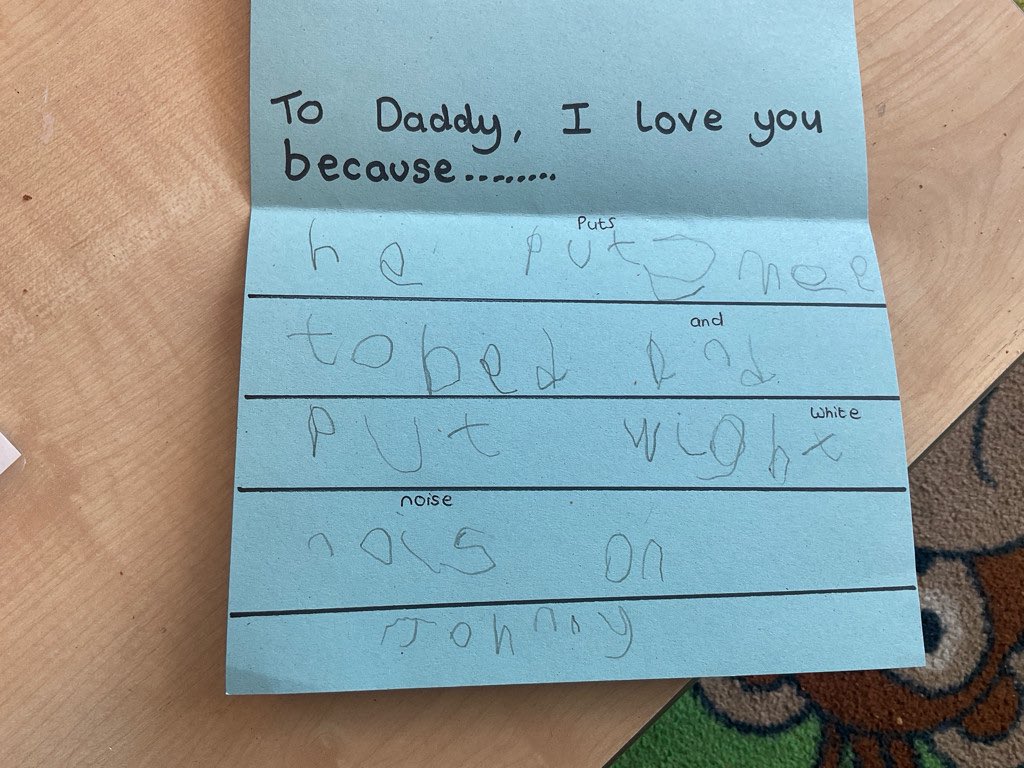 To Daddy, I love you
because........
Puts
he put mee
and
to bed and
White
put wight
noise
nois on
Johnny